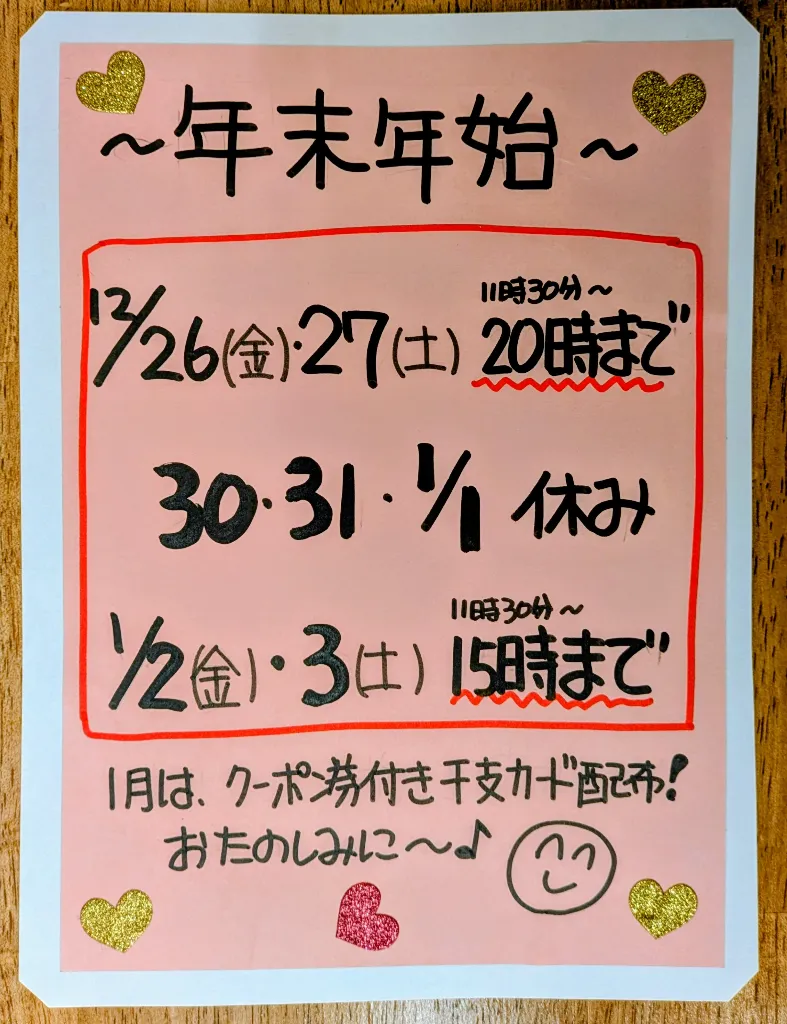 ～年末年始～
11時30分～
12/26(金)・27(土) 20時まで
30・31・1/1 休み
11時30分～
1/2(金)・3(土) 15時まで
1月は、クーポン券付き干支カード配布!
おたのしみに～♪